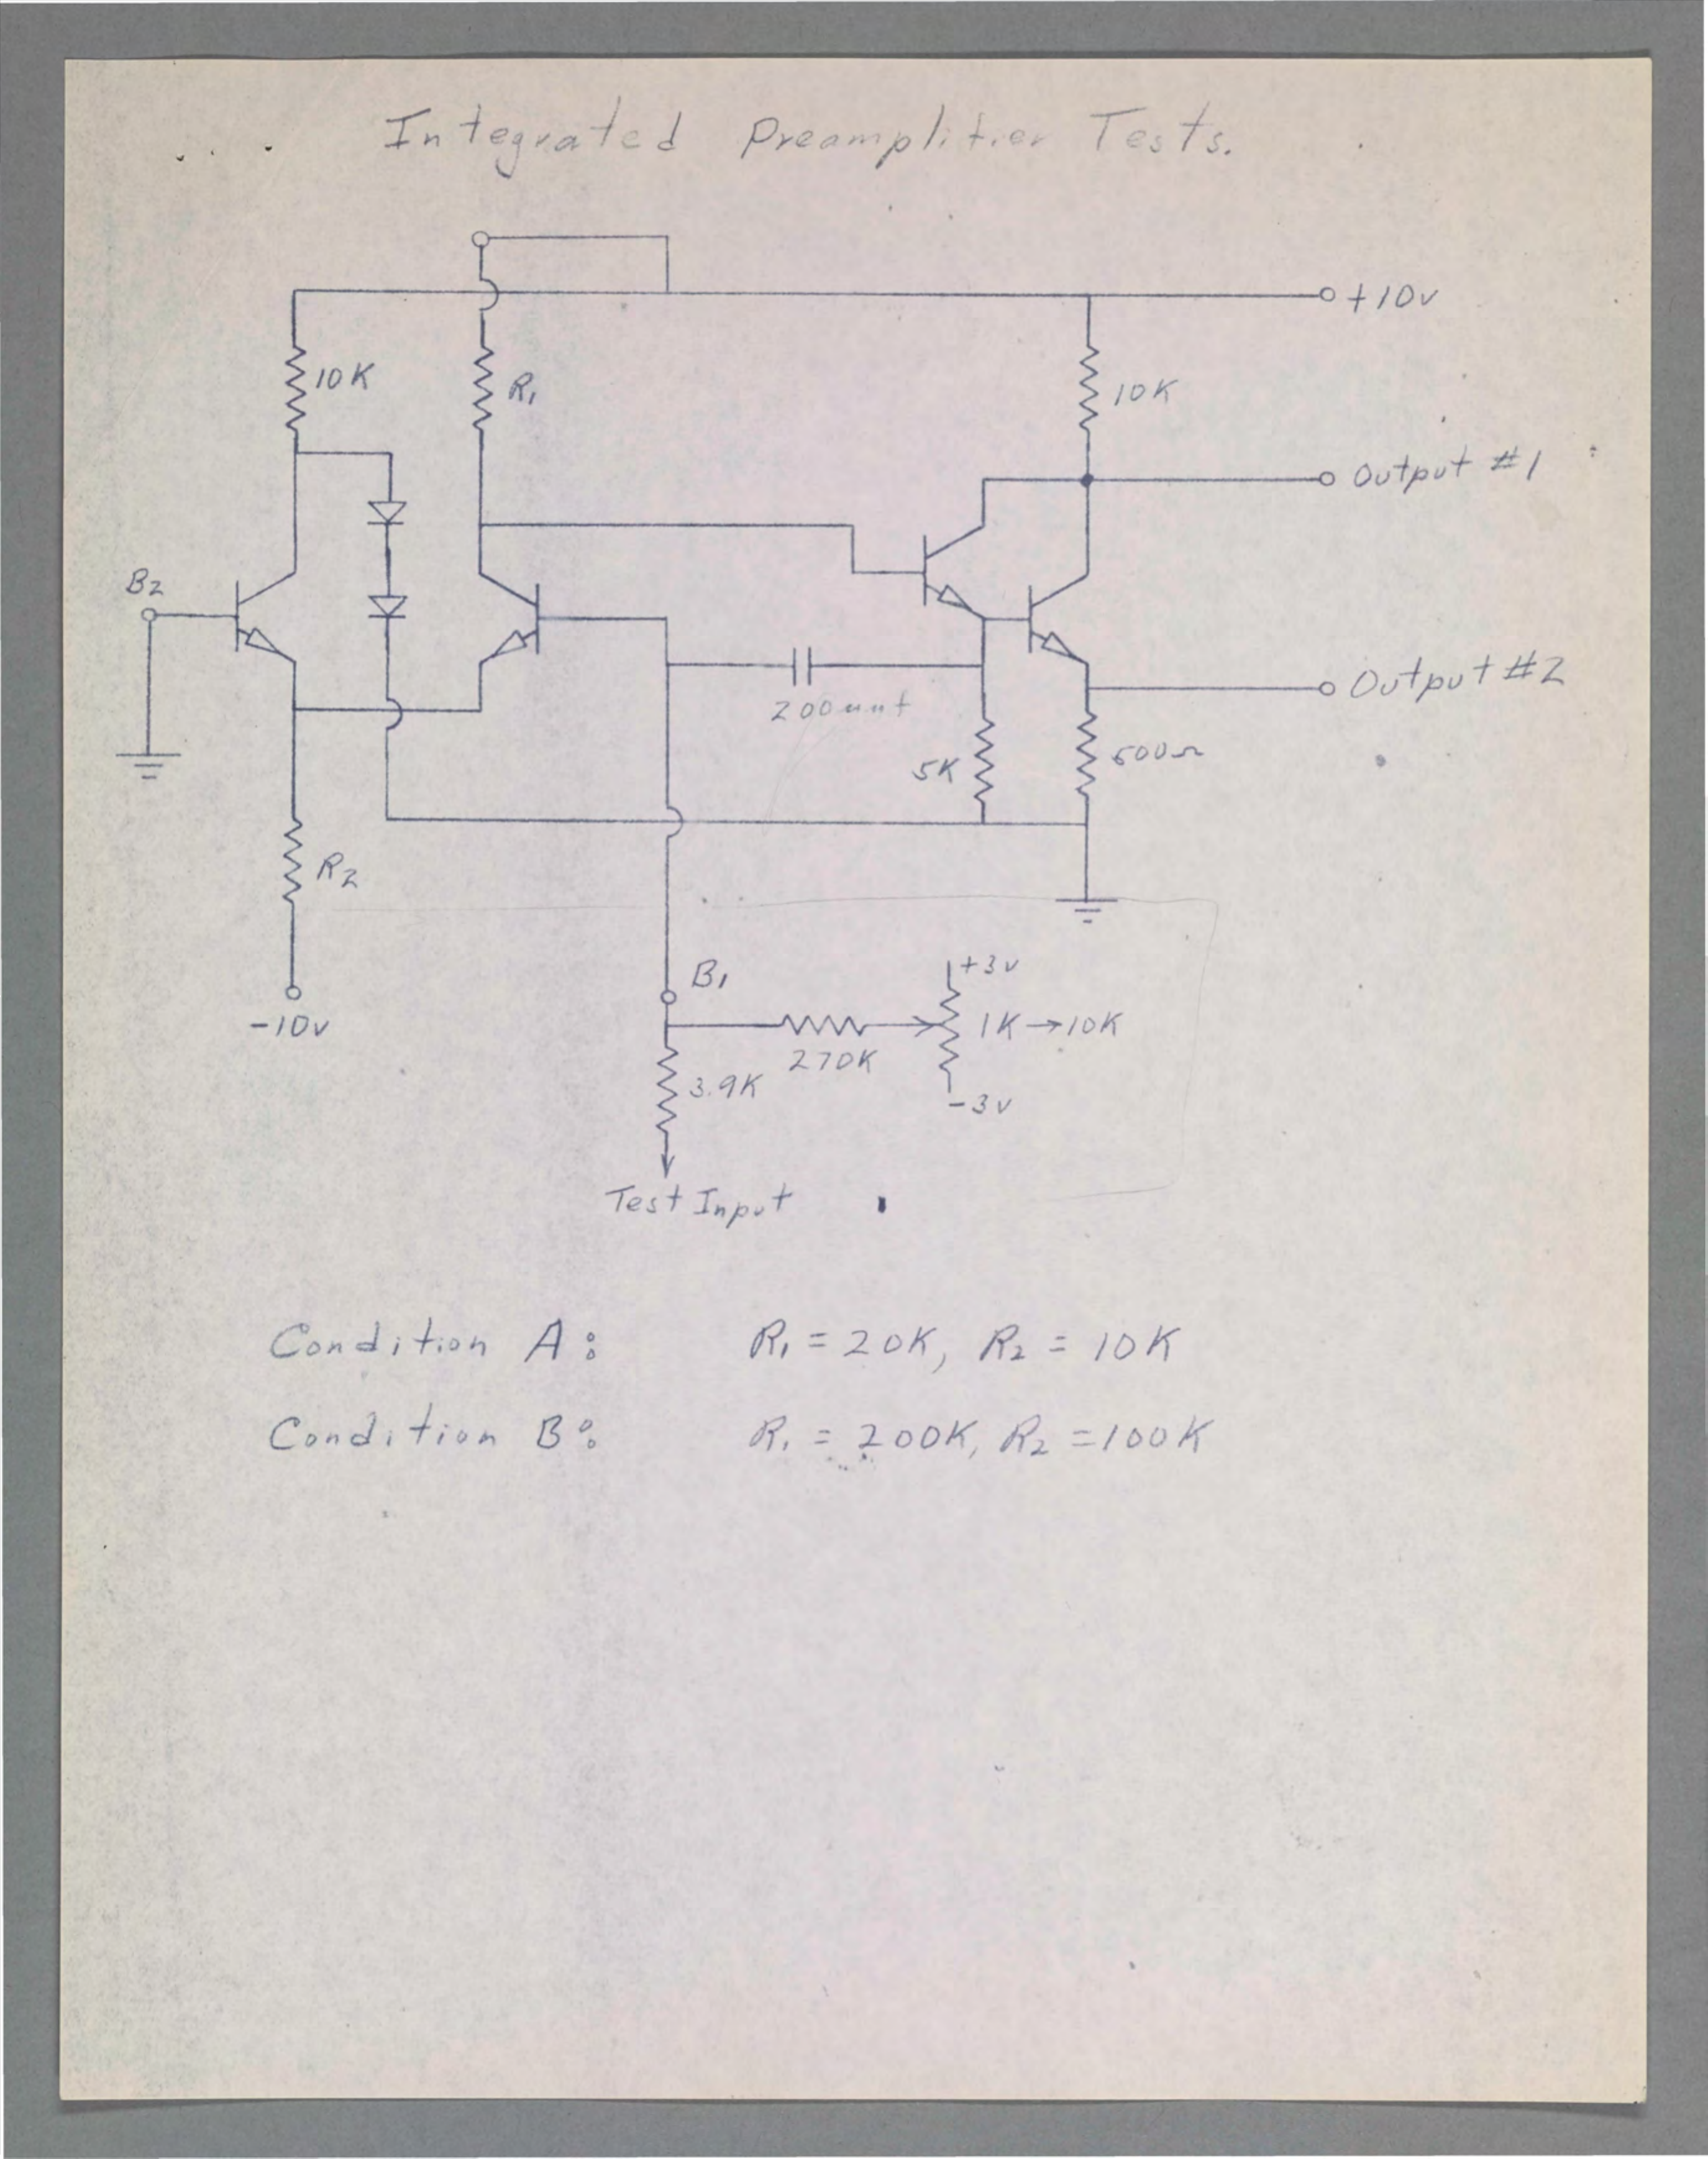 Integrated Preamplifier Tests.
+10v
10K
R1
10K
Output #1
B2
Output #2
200uuf
5K
R2
B1
+3v
-10v
1K→10K
270K
3.9K
-3v
Test Input
Condition A: R1 = 20K, R2 = 10K
Condition B: R1 = 200K, R2 = 100K